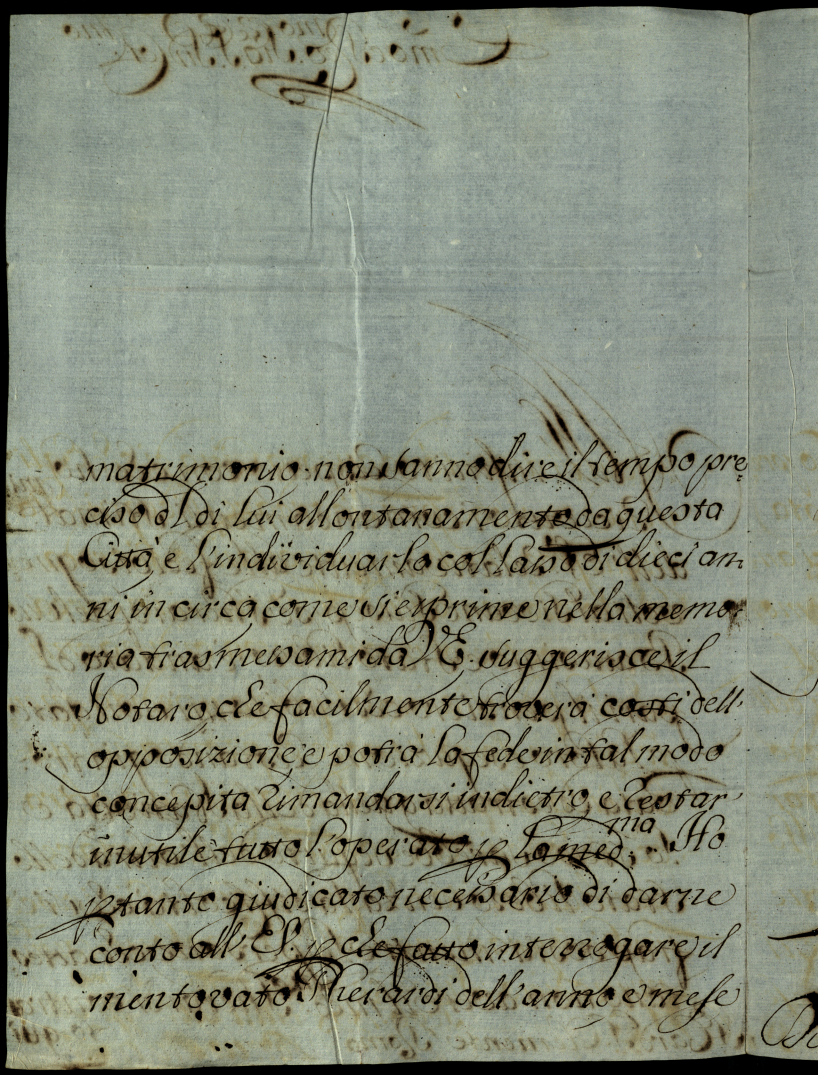 matrimonio non sanno dire il tempo pre=
ciso dl di lui allontanamento da questa
Città e l'individuarlo col lasso di dieci an=
ni in circa come si esprime nella memo=
ria trasmessami da VE. suggerisce il
Notaro che facilmente troverà costì dell'
opposizione e potrà la fede in tal modo
concepita rimandarsi indietro, e restar'
inutile tutto l'operato p la med.ma Ho
ptanto giudicato necessario di darne
conto all' E.V. p che fatto interrogare il
mentovato Gherardi dell'anno e mese